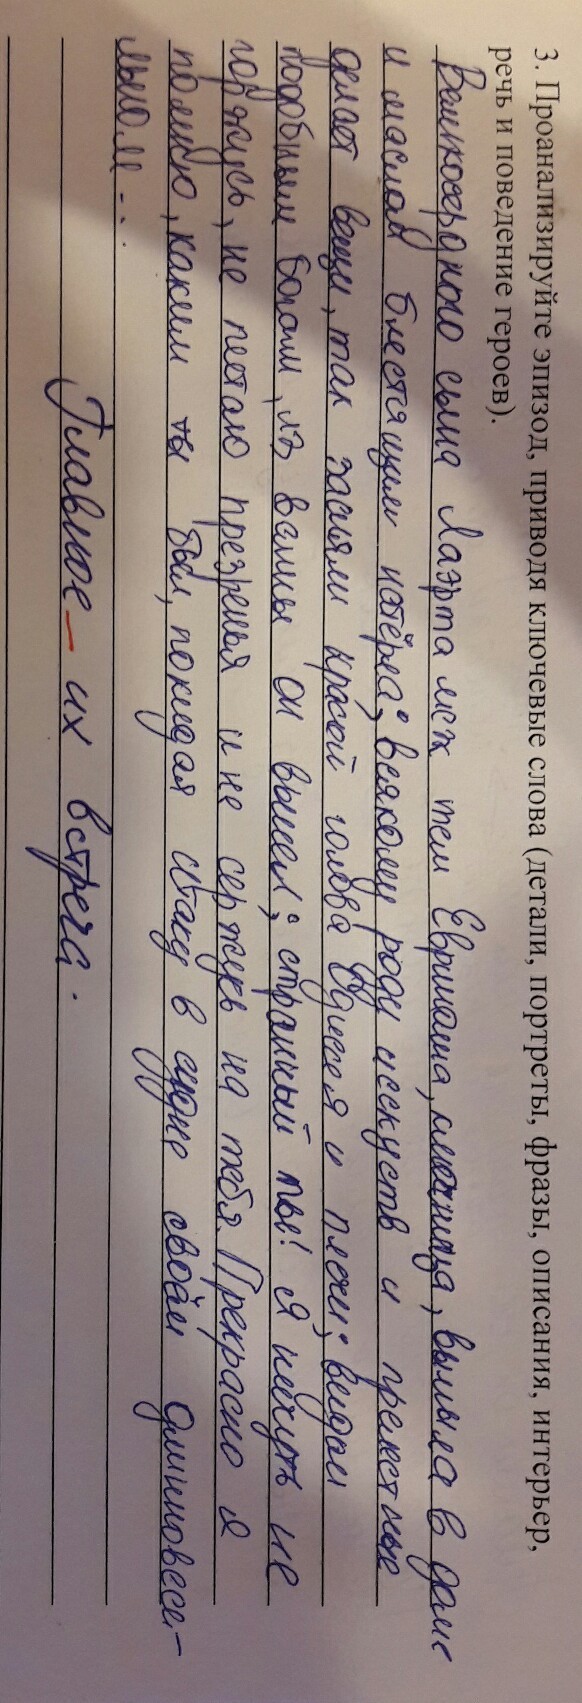 3. Проанализируйте эпизод, приводя ключевые слова (детали, портреты, фразы, описания, интерьер,
речь и поведение героев).
Великосердного сына Лаэрта меж тем Евринома, ключница, вымыла в доме
и маслом блестящим натёрла; всякому роди исскуств и прелестные
делает вещи, так засияли красой голова Одиссея и плечи; видом
подобным богам, из ванны он вышел; странный ты! Я ничуть не
горжусь, не питаю презренья и не сержусь на тебя. Прекрасно я
помню, каким ты был, покидая Итаку в судне своём длинновесе-
льном...
Главное – их встреча.